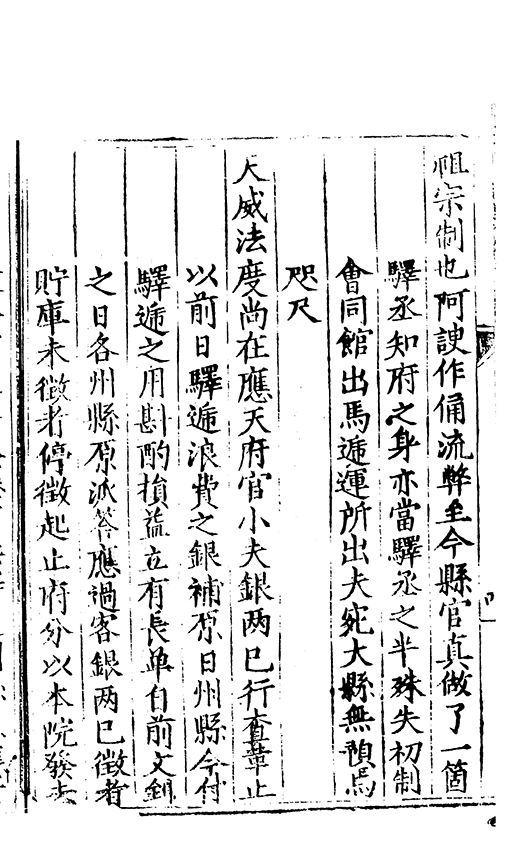 祖宗制也阿諛作俑流弊至今縣官真做了一箇
驛丞知府之身亦當驛丞之半殊失初制
會同館出馬遞運所出夫宛大縣無預焉
咫尺
天威法度尚在應天府官小夫銀两已行查革止
以前日驛遞浪費之銀補原日州縣今付
驛遞之用斟酌損益立有長單自前文到
之日各州縣原派答應過客銀两已徵者
貯庫未徵者停徵起止府分以本院發去